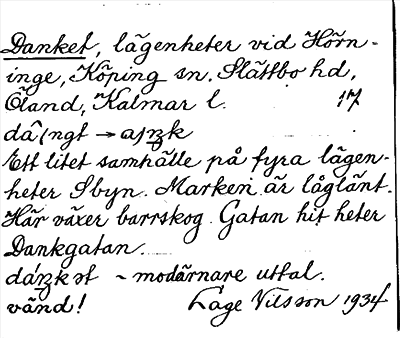 Danket, lägenheter vid Hörn-
inge, Köping sn. Slättbo hd,
Öland, Kalmar l. 17
Ett litet samhälle på fyra lägen-
heter S byn. Marken är låglänt.
Här växer barrskog. Gatan hit heter
Dankgatan.
~ modärnare uttal.
vänd! Låge Nilsson 1934